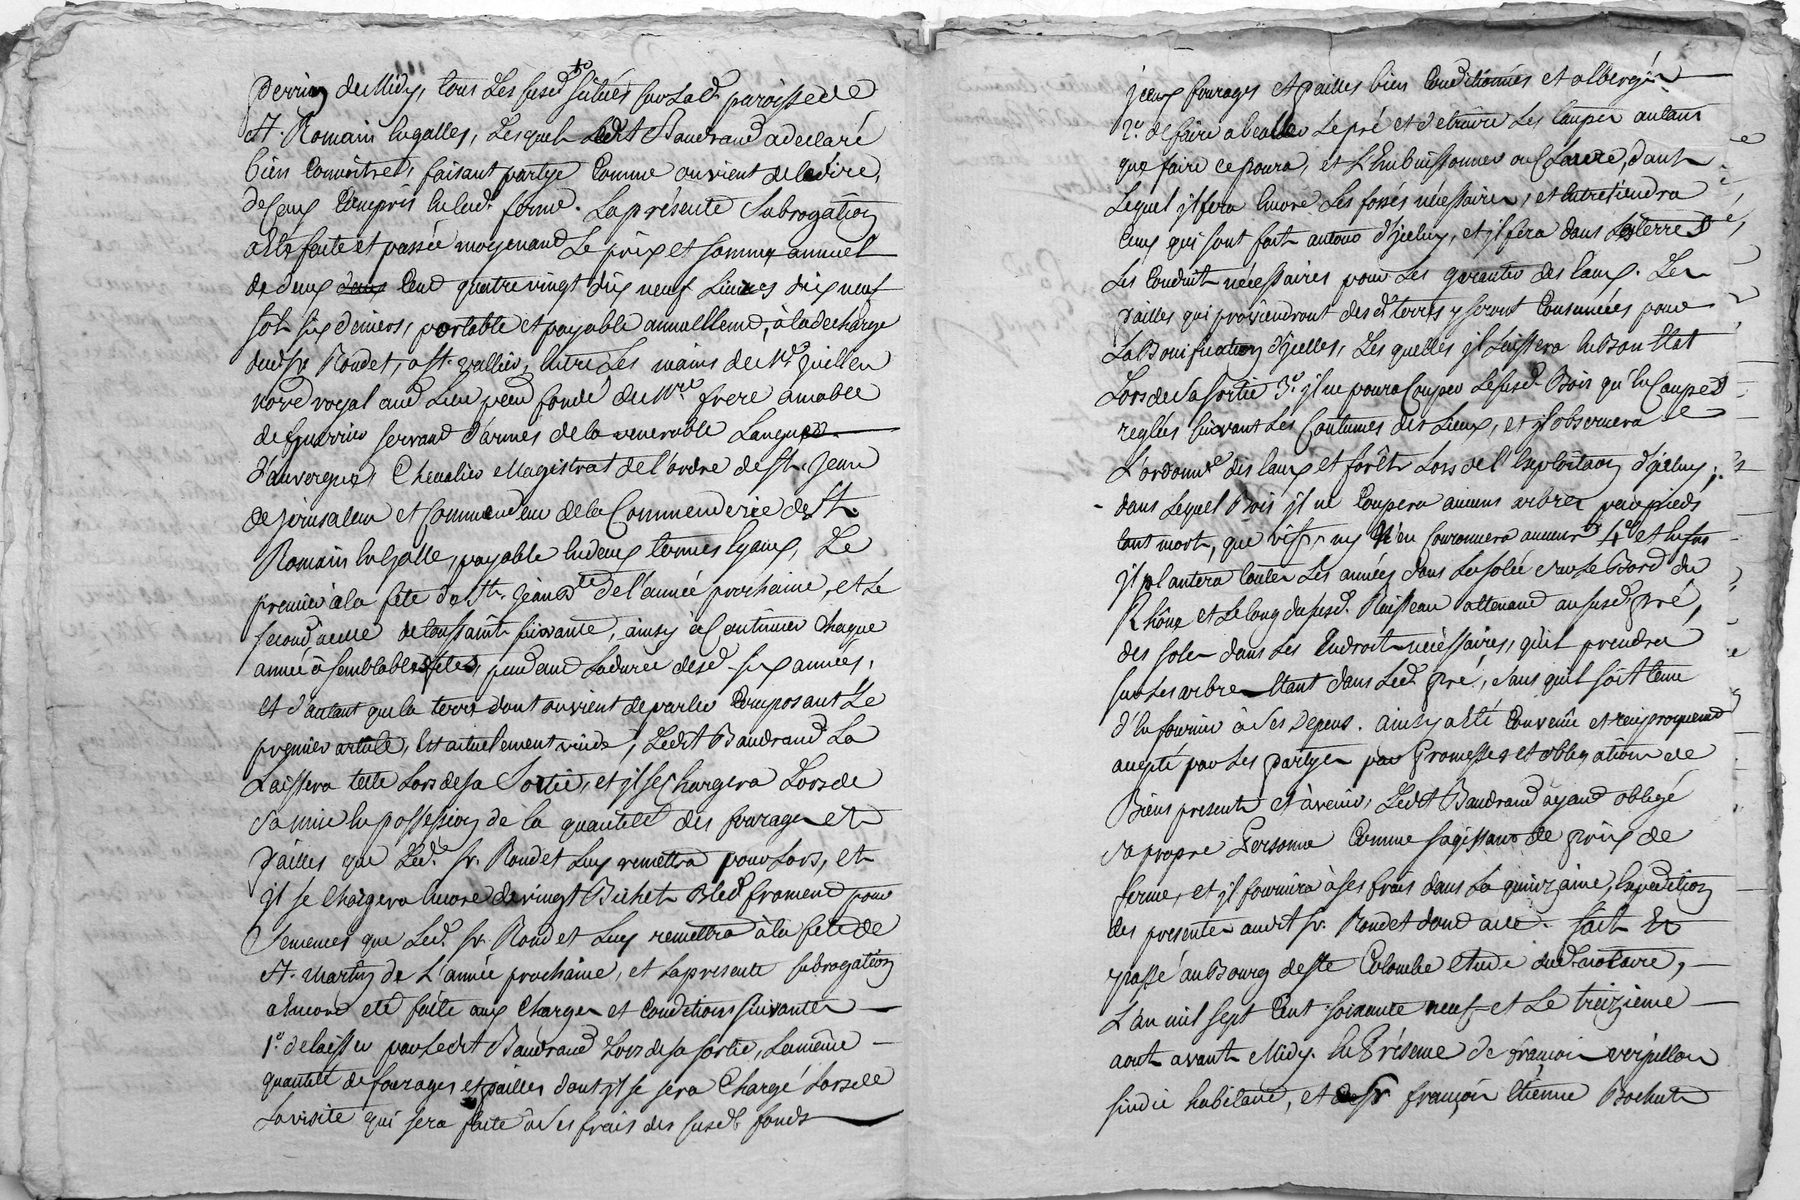 perrin du Midy, tous Les susd. situés sur Lad. paroisse de
St. Romain En galles, Lesquels Ledit Baudrand a declaré
bien Connoitre, faisant partye Comme on vient de le dire,
de Ceux Compris En lad. ferme. La présente Subrogation
a Eté faite et passée moyenand Le prix et somme annuel
de deux Cent quatre vingt dix neuf Livres dix neuf
sols six deniers, portable et payable annuellement, à la decharge
dud. Sr. Rondet, a St. vallier, Entre Les mains de Me. guillen
nore. royal aud. Lieu fondé de Mre. frere amable
de servand d'armes de la venerable Langue
d'auvergne, Chevalier Magistral de l'ordre de St. Jean
de Jerusalem et Commandeur de la Commenderie de St.
Romain En Galle, payable En deux termes Egaux, Le
premier a la fête de St. Jean Bte. de l'année prochaine, et Le
second a celle de toussaint suivante, ainsy à Continuer Chaque
année à semblables fêtes, pendand La durée desd. six années,
Et d'autant que la terre dont on vient de parler Composant Le
premier article, Est actuelement vuide, Ledit Baudrand La
Laissera telle Lors de sa Sortie, et il se Chargera Lors de
sa mise En possession de la quantité des fourages et
pailles que Led. Sr. Rondet Luy remettra pour Lors, et
il se Chargera Encore de vingt Bichets Bled froment pour
Semences que Led. Sr. Rondet Luy remettra à la fête de
St. Martin de L'année prochaine, et La presente subrogation
a Encore eté faite aux Charges et Conditions suivantes
1°. de laisser par Ledit Baudrand Lors de sa sortie, La même
quantité de fourages et pailles dont il se sera Chargé Lors de
La visite qui sera faite à Ses frais des susd. fonds
iceux fourages et pailles bien Conditionnés et albergés
2°. de faire Le pré et detruire Les taupes autant
que faire ce poura, et L'Enbuissonner ou Clorre, dans
Lequel il fera Encore Les fossés nécessaires, et Entretiendra
Ceux qui sont fait autour d'jceluy, et il fera dans Les terres
Les Conduits nécessaires pour Les garantir des Eaux. Les
pailles qui proviendront desd. terres y seront Consumées pour
La Bonification d'jcelles, Les quelles il Laissera En Bon Etat
Lors de sa sortie 3°. il ne poura Couper Le susd. Bois qu'En Coupes
reglées suivant Les Coutumes des Lieux, et il observera
L'ordonnce. des Eaux et forêts Lors de l'Exploitaon. d'jceluy;
dans Lequel Bois il ne Coupera aucuns arbres par pieds
tant morts, que vifs, ny N'en Couronnera aucuns 4°. et Enfin
il plantera toutes Les années dans La solée sur Le Bord du
Rhône et Le long du susd. Ruisseau attenand au susd. pré,
des soles dans Les Endroits nécessaires, qu'il prendra
sur Les arbres Etant dans Led. pré, sans qu'il soit tenu
d'En fournir à Ses depens. ainsy a Eté Convenû et reciproquemd.
accepté par Les partyes par promesses et obligations de
Biens presents et à venir, Ledit Baudrand ayand obligé
sa propre Personne Comme s'agissant de prix de
ferme, et il fournira à ses frais dans La quinzaine, Expedition
des presentes audit Sr. Rondet dond acte. fait Et
passé au Bourg de Ste Colombe Etude dud. notaire,
L'an mil sept Cent soixante neuf et Le treizieme
aout avant Midy. En Présence de françois verpillon
sindic habitant, et de Sr françois Etienne Bochut